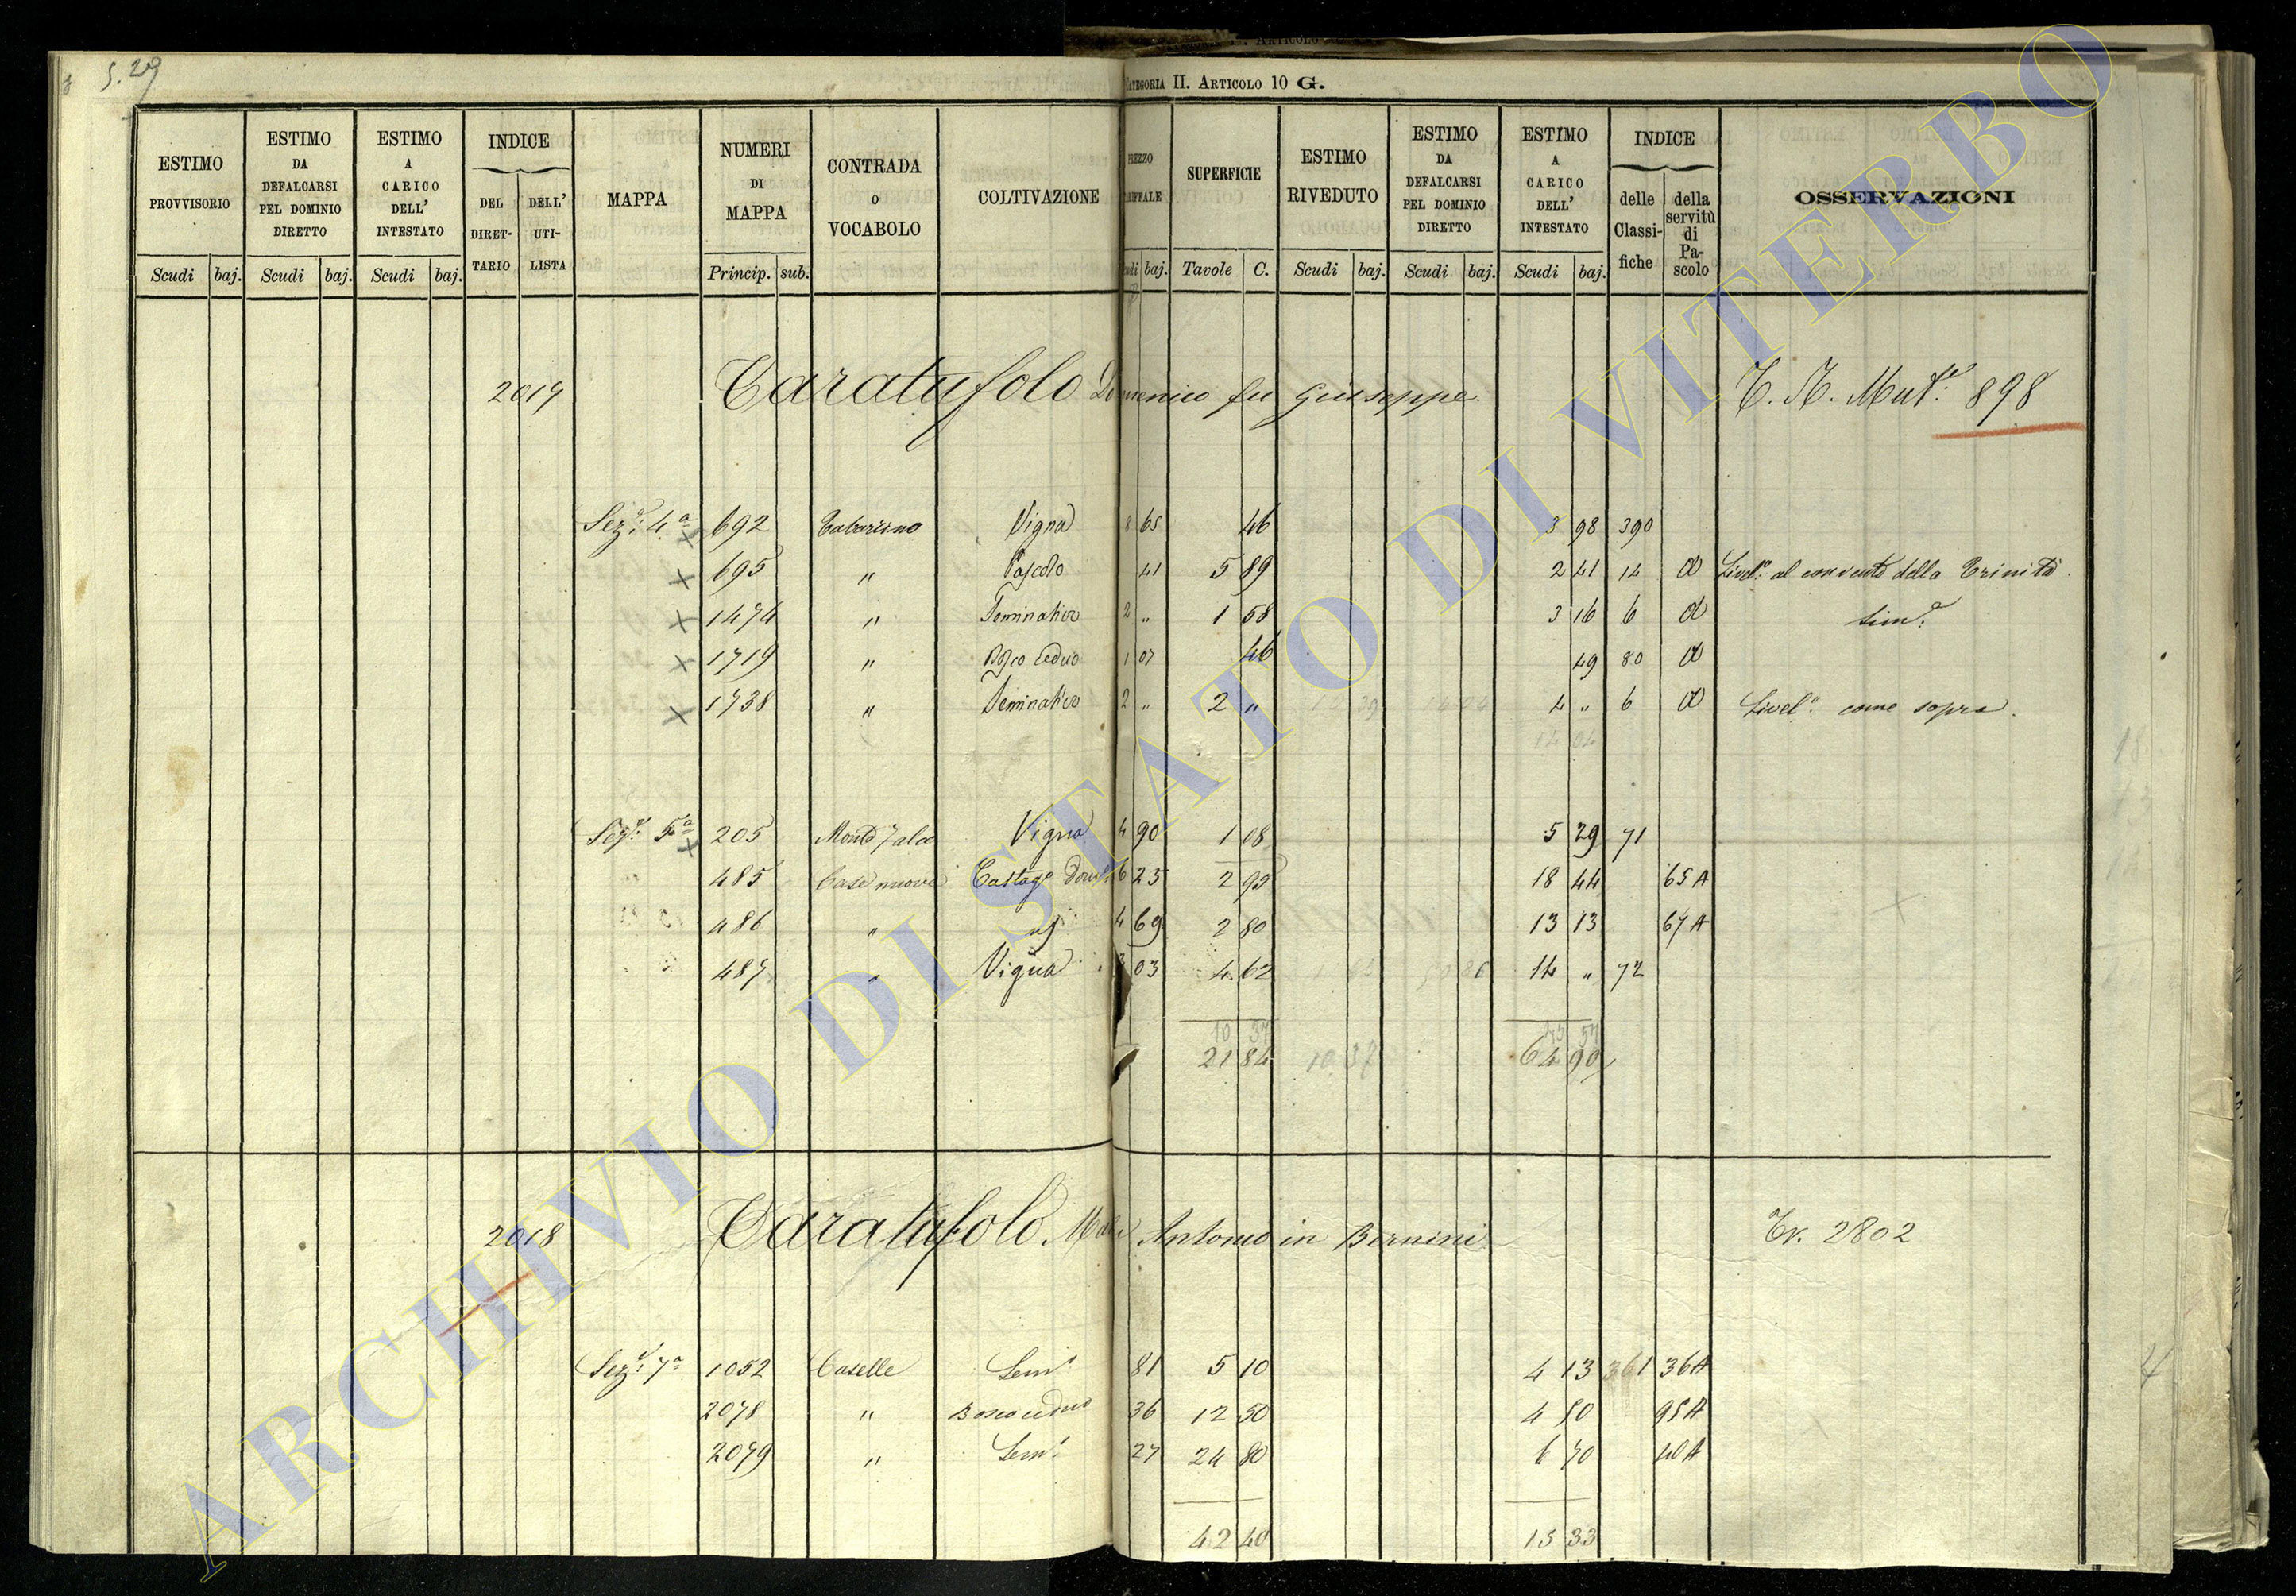 S. 29
CATEGORIA II. ARTICOLO 10 G.
ESTIMO PROVVISORIO Scudi baj.
ESTIMO DA DEFALCARSI PEL DOMINIO DIRETTO Scudi baj.
ESTIMO A CARICO DELL' INTESTATO Scudi baj.
INDICE DEL DIRET-TARIO DELL' UTI-LISTA
MAPPA
NUMERI DI MAPPA Princip. sub.
CONTRADA O VOCABOLO
COLTIVAZIONE
SUPERFICIE Tavole C.
ESTIMO RIVEDUTO Scudi baj.
ESTIMO DA DEFALCARSI PEL DOMINIO DIRETTO Scudi baj.
ESTIMO A CARICO DELL' INTESTATO Scudi baj.
INDICE delle Classi-fiche della servitù di Pa-scolo
OSSERVAZIONI
2017 Taratufolo Domenico fu Giuseppe T. N. Mut.e 898
Sez.e 4.a 692 Vigna 8 65 46 3 98 390
695 " Pascolo 41 5 89 2 41 14 a Livel.o al convento della Trinità
1474 " Seminativo 2 " 1 58 3 16 6 a Sim.e
1719 " Bosco ceduo 1 07 46 49 80 a
1738 " Seminativo 2 " 2 " 4 " 6 a Livel.o come sopra
14 04
Sez.e 5.a 205 Monte Jalco Vigna 4 90 1 08 5 29 71
485 Case nuove Castag.o dom.o 6 25 2 95 18 44 65 A
486 " 4 69 2 80 13 13 67 A
487 " Vigna 3 03 4 62 14 " 72
10 37
21 84 10 37 64 90
2018 Taratufolo Antonio in Bernini Tr. 2802
Sez.e 7.a 1052 Caselle Sem.o 81 5 10 4 13 361 36 A
2078 " Bosco ceduo 36 12 50 4 50 98 A
2079 " Sem.o 27 24 80 6 70 40 A
42 40 15 33
ARCHIVIO DI STATO DI VITERBO